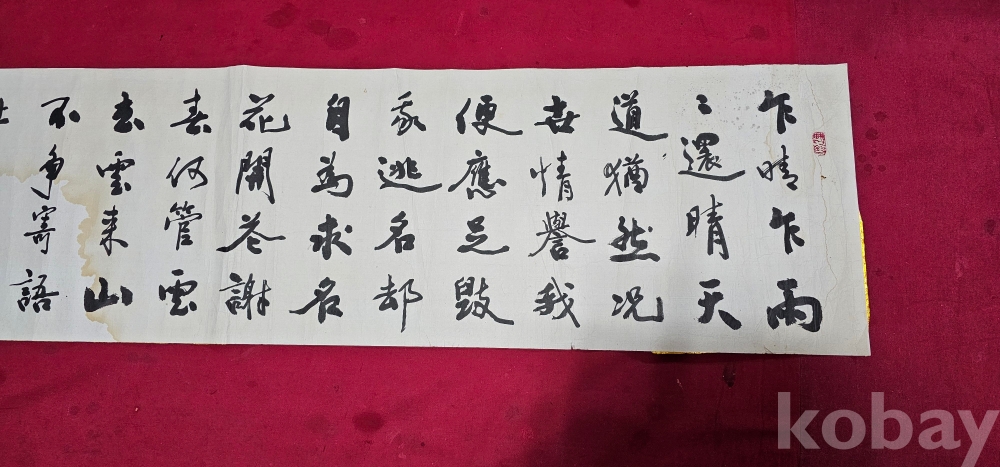 乍晴乍雨
〻還晴天
道猶然况
世情譽我
便應是毀
我逃名却
自為求名
花開花謝
春何管雲
去雲来山
不争寄語
kobay